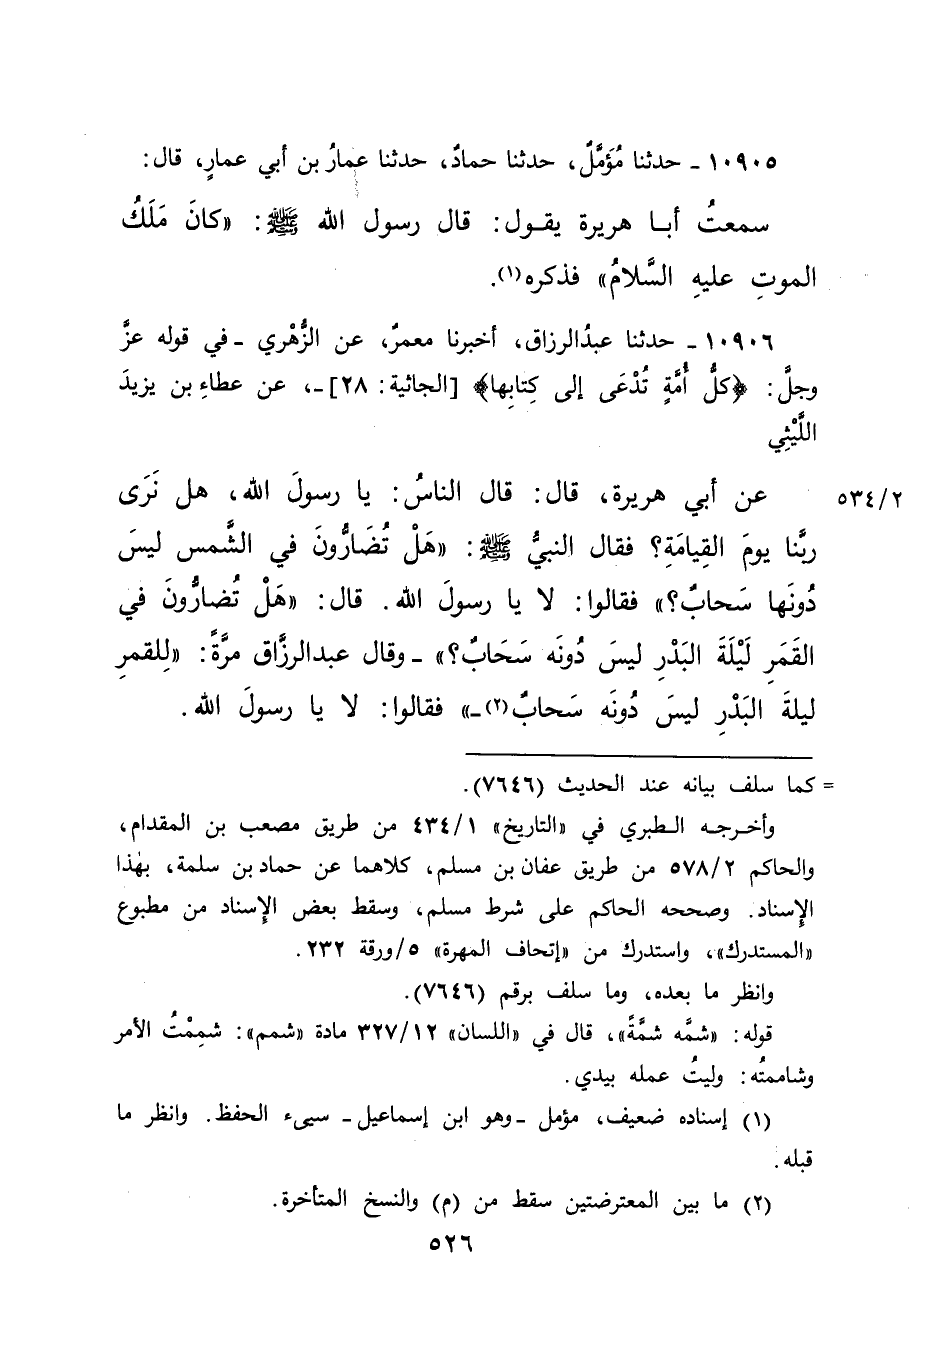 ١٠٩٠٥ ـ حدثنا مُؤَمَّلٌ، حدثنا حمادٌ، حدثنا عمارُ بن أبي عمارٍ، قال:
سمعتُ أبـا هريرة يقـول: قال رسول الله ﷺ: «كانَ مَلَكُ
الموتِ عليهِ السَّلامُ» فذكره(١).
١٠٩٠٦ ـ حدثنا عبدُالرزاق، أخبرنا معمرٌ، عن الزُّهْري ـ في قوله عزَّ
وجلَّ: ﴿كلُّ أُمَّةٍ تُدْعَى إلى كِتابِها﴾ [الجاثية: ٢٨] ـ، عن عطاءِ بن يزيدَ
اللَّيْثِي
٥٣٤/٢ عن أبي هريرة، قال: قال الناسُ: يا رسولَ الله، هل نَرَى
ربَّنا يومَ القِيامَةِ؟ فقال النبيُّ ﷺ: «هَلْ تُضَارُّونَ في الشَّمس ليسَ
دُونَها سَحابٌ؟» فقالوا: لا يا رسولَ الله. قال: «هَلْ تُضارُّونَ في
القَمَرِ لَيْلَةَ البَدْرِ ليسَ دُونَه سَحَابٌ؟» ـ وقال عبدالرزَّاق مرَّةً: «لِلقمرِ
ليلةَ البَدْرِ ليسَ دُونَه سَحابٌ(٢) ـ» فقالوا: لا يا رسولَ الله.
= كما سلف بيانه عند الحديث (٧٦٤٦).
وأخرجـه الـطبري في «التاريخ» ٤٣٤/١ من طريق مصعب بن المقدام،
والحاكم ٥٧٨/٢ من طريق عفان بن مسلم، كلاهما عن حماد بن سلمة، بهٰذا
الإسناد. وصححه الحاكم على شرط مسلم، وسقط بعض الإسناد من مطبوع
«المستدرك»، واستدرك من «إتحاف المهرة» ٥/ورقة ٢٣٢.
وانظر ما بعده، وما سلف برقم (٧٦٤٦).
قوله: «شمَّه شمَّةً»، قال في «اللسان» ٣٢٧/١٢ مادة «شمم»: شمِمْتُ الأمر
وشاممتُه: وليتُ عمله بيدي.
(١) إسناده ضعيف، مؤمل ـ وهو ابن إسماعيل ـ سيىء الحفظ. وانظر ما
قبله.
(٢) ما بين المعترضتين سقط من (م) والنسخ المتأخرة.
٥٢٦